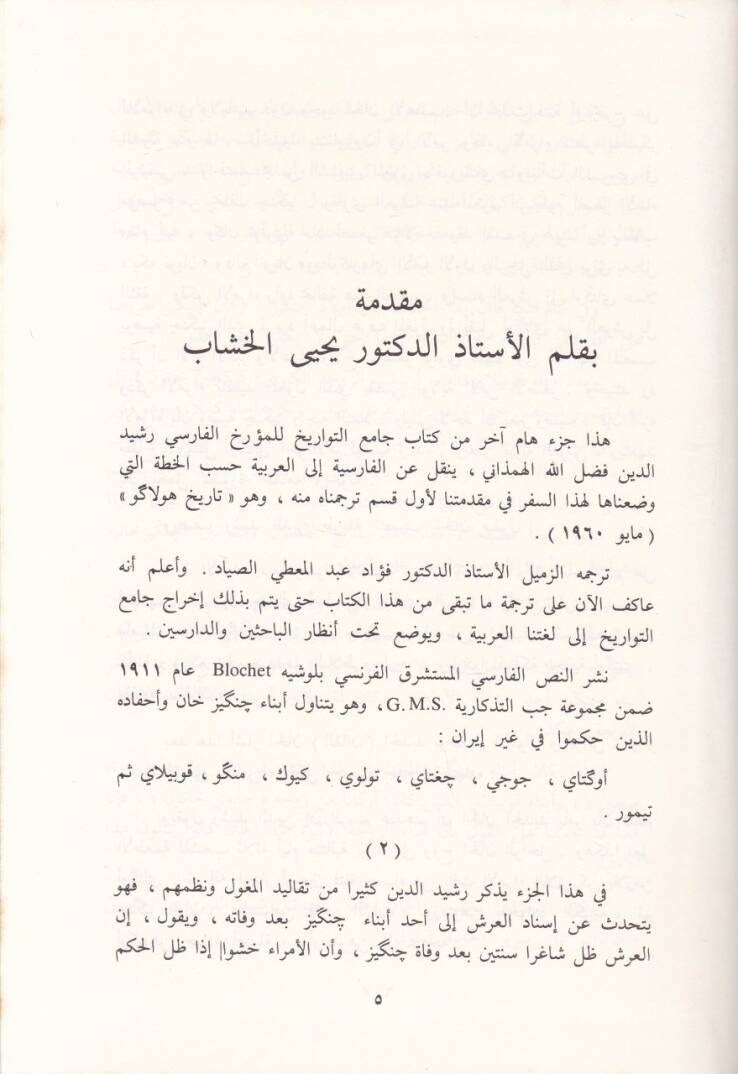 مقدمة
بقلم الأستاذ الدكتور يحيى الخشاب
هذا جزء هام آخر من كتاب جامع التواريخ للمؤرخ الفارسي رشيد
الدين فضل الله الهمذاني ، ينقل عن الفارسية إلى العربية حسب الخطة التي
وضعناها لهذا السفر في مقدمتنا لأول قسم ترجمناه منه ، وهو « تاريخ هولاگو »
( مايو ١٩٦٠ ) .
ترجمه الزميل الأستاذ الدكتور فؤاد عبد المعطي الصياد . وأعلم أنه
عاكف الآن على ترجمة ما تبقى من هذا الكتاب حتى يتم بذلك إخراج جامع
التواريخ إلى لغتنا العربية ، ويوضع تحت أنظار الباحثين والدارسين .
نشر النص الفارسي المستشرق الفرنسي بلوشيه Blochet عام ١٩١١
ضمن مجموعة جب التذكارية G.M.S. ، وهو يتناول أبناء چنگيز خان وأحفاده
الذين حكموا في غير إيران :
أوگتاي ، جوجي ، چغتاي ، تولوي ، كيوك ، منگو ، قوبيلاي ثم
تيمور .
( ٢ )
في هذا الجزء يذكر رشيد الدين كثيرا من تقاليد المغول ونظمهم ، فهو
يتحدث عن إسناد العرش إلى أحد أبناء چنگيز بعد وفاته ، ويقول ، إن
العرش ظل شاغرا سنتين بعد وفاة چنگيز ، وأن الأمراء خشوا إذا ظل الحكم
٥